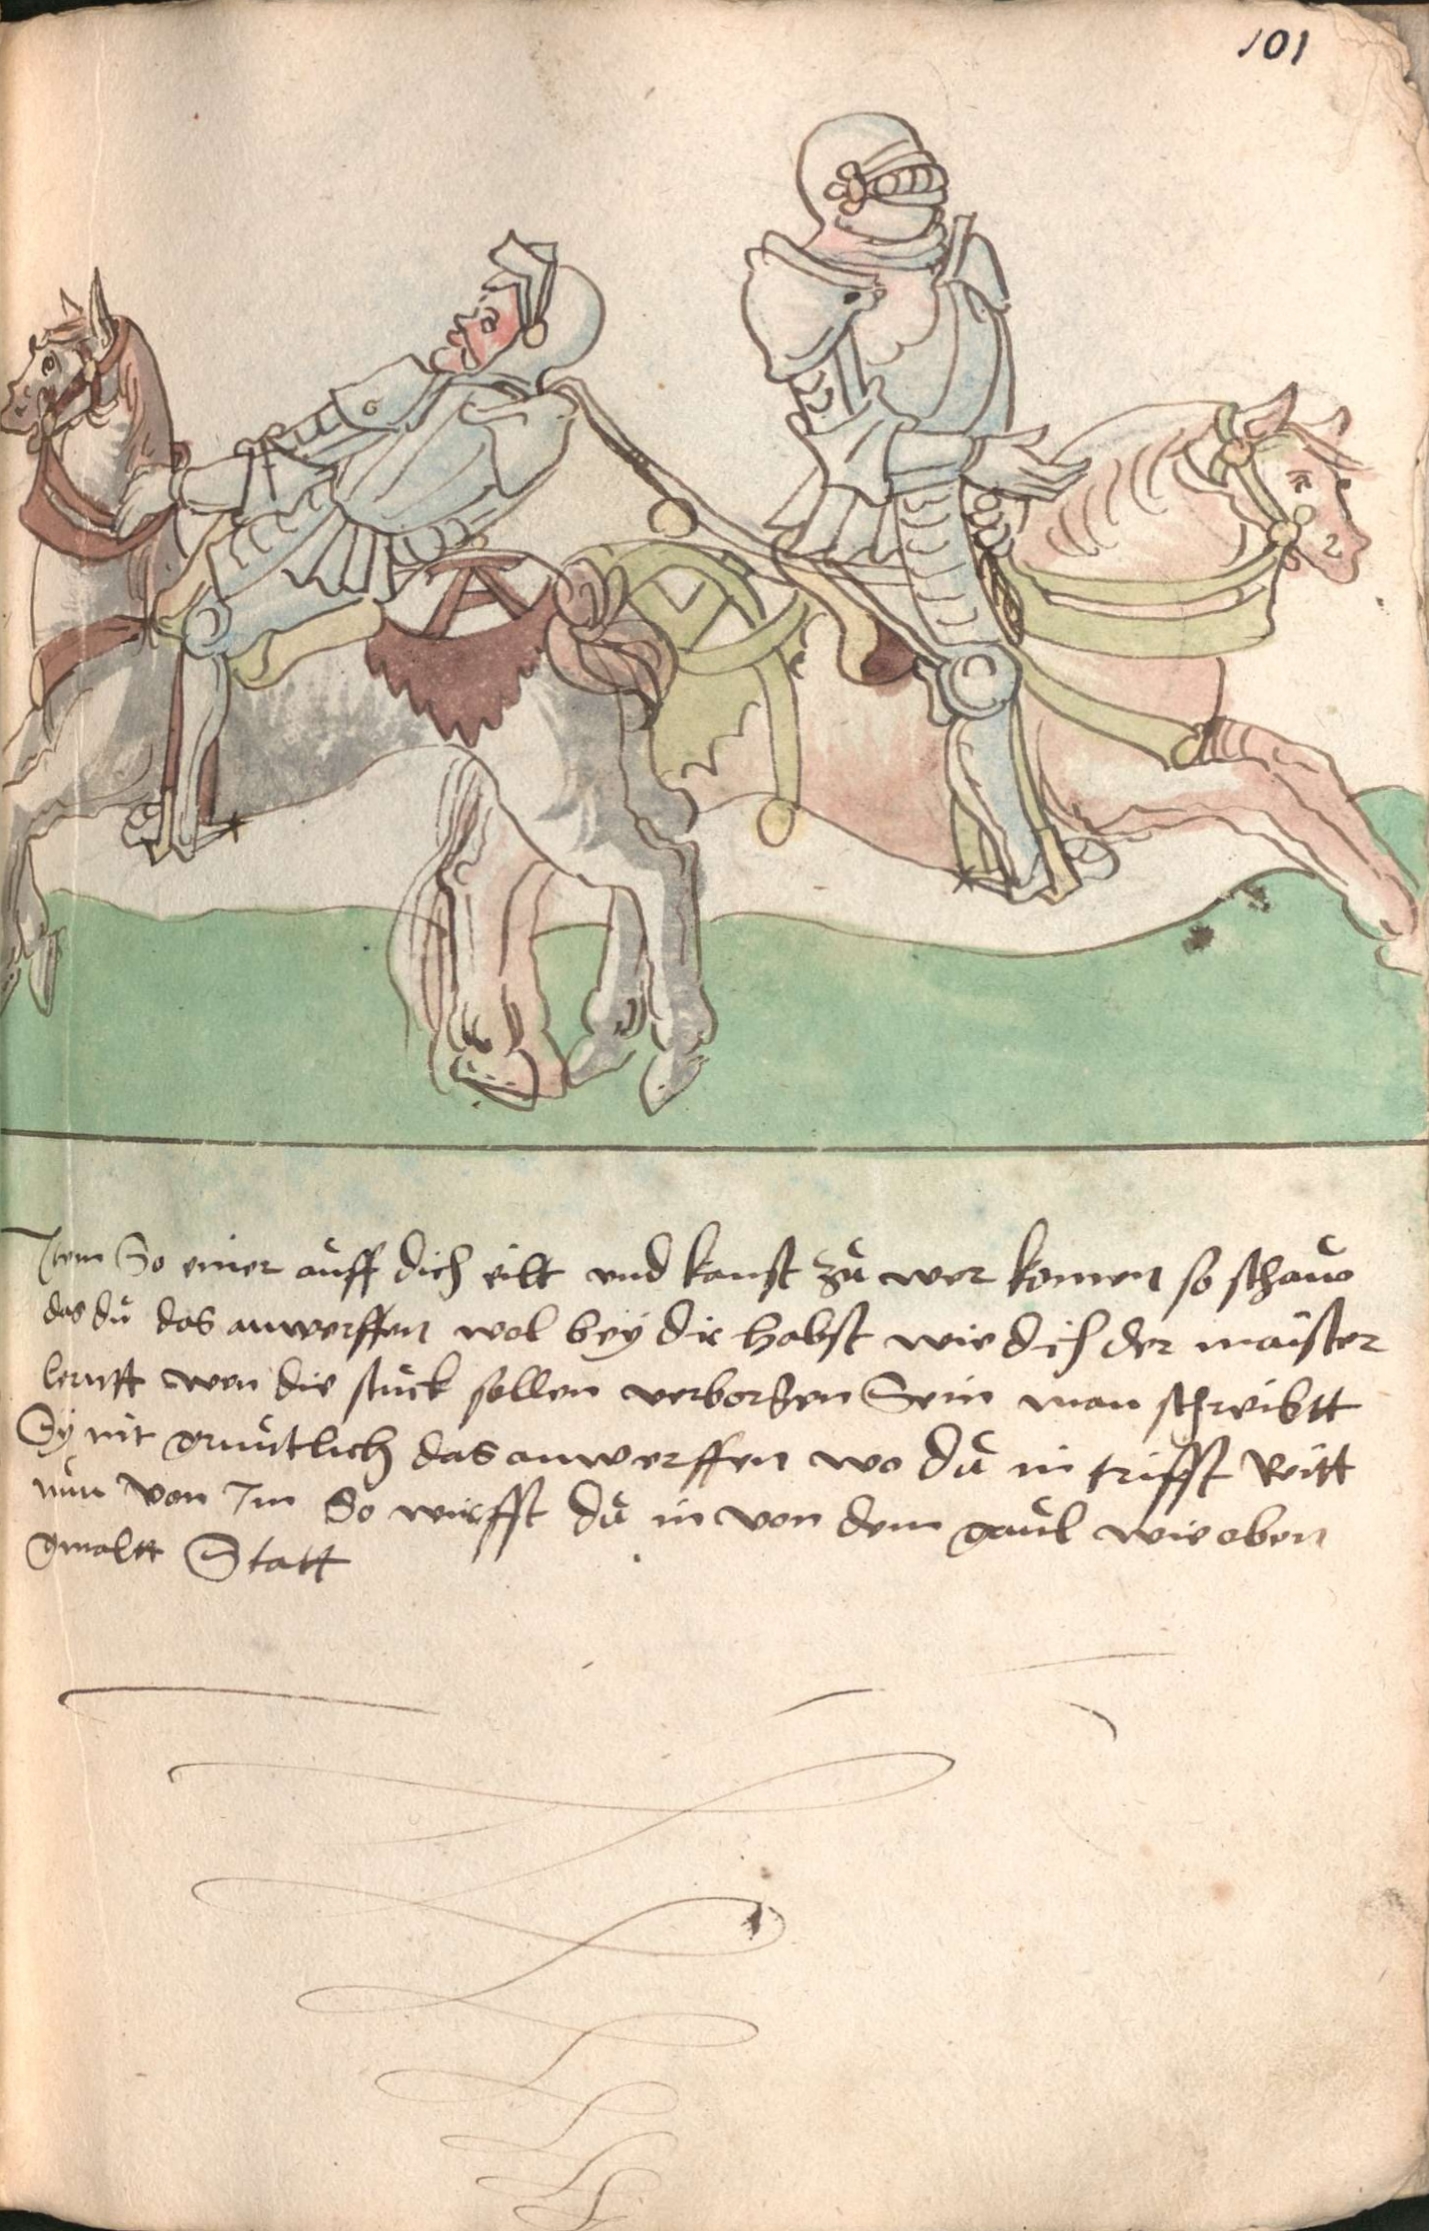 101
Item So einer auff dich eilt vnd kanst zu wer komen so schaw
das du das anwerffen wol bey dir habst wie dich der maister
lernett wen die stuck sollen verborgen Sein man schreibtt
Sy nit gruntlich das anwerffen wo du in trifft Reitt
nun von Im So wirffst du in von dem gaul wie oben
gmaltt Statt